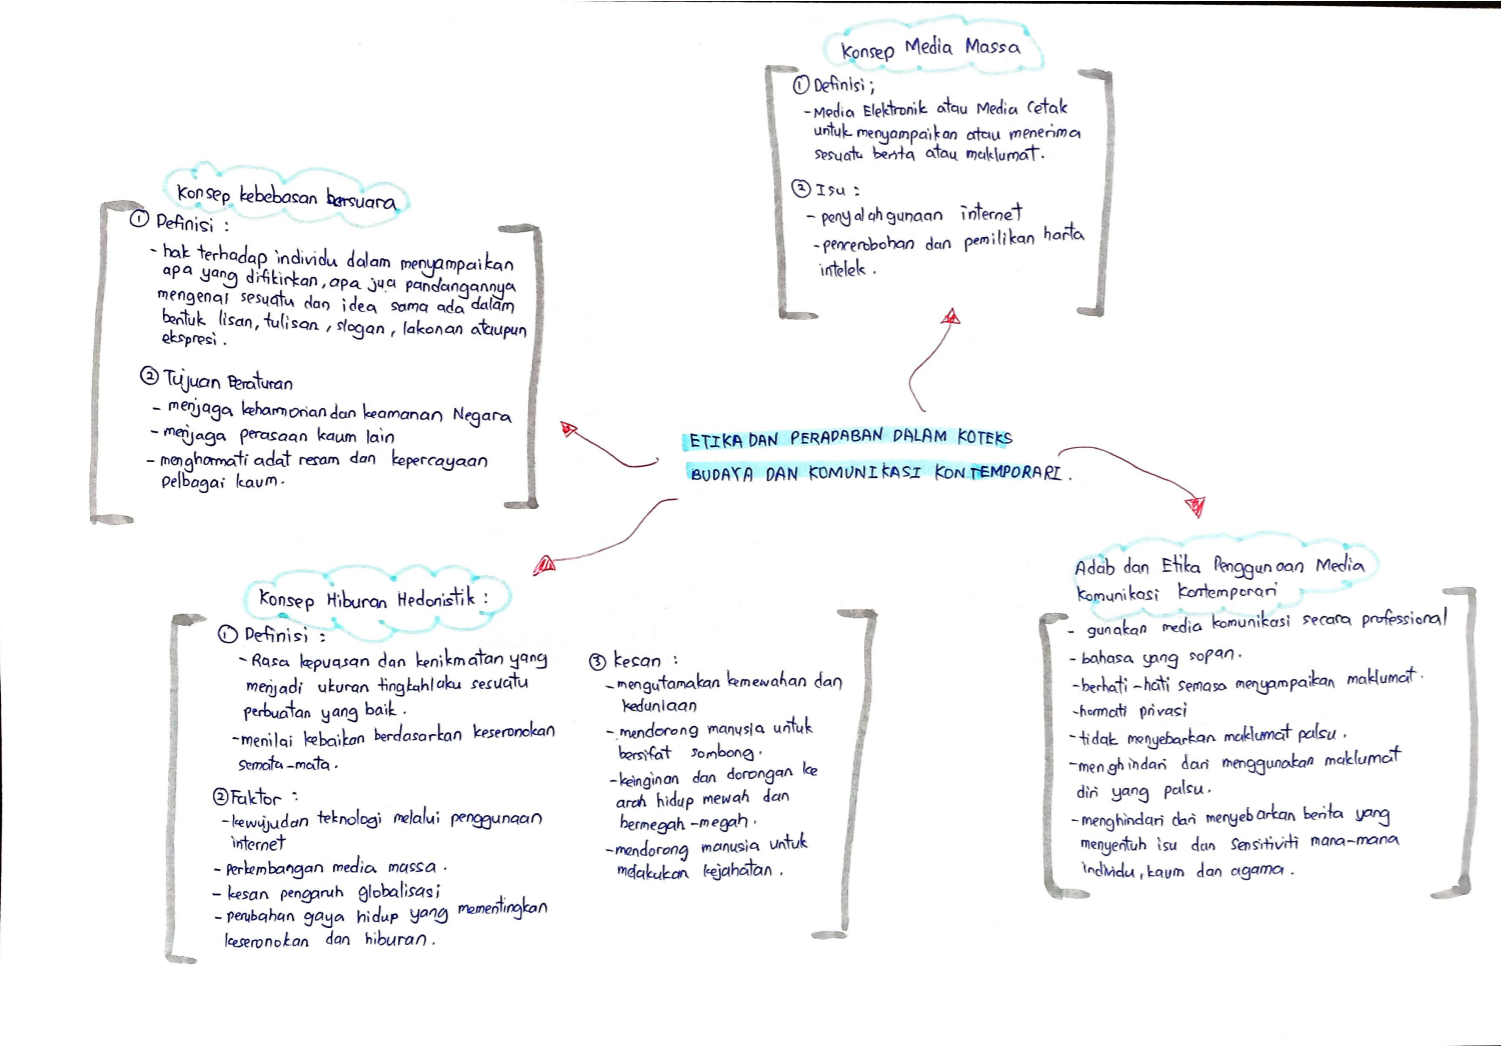 Konsep Media Massa
① Definisi;
- Media Elektronik atau Media Cetak
untuk menyampaikan atau menerima
sesuatu berita atau maklumat.
② Isu :
- penyalahgunaan internet
- pencerobohan dan pemilikan harta
intelek.
Konsep kebebasan bersuara
① Definisi :
- hak terhadap individu dalam menyampaikan
apa yang difikirkan, apa jua pandangannya
mengenai sesuatu dan idea sama ada dalam
bentuk lisan, tulisan, slogan, lakonan ataupun
ekspresi.
② Tujuan Peraturan
- menjaga keharmonian dan keamanan Negara
- menjaga perasaan kaum lain
- menghormati adat resam dan kepercayaan
pelbagai kaum.
ETIKA DAN PERADABAN DALAM KOTEKS
BUDAYA DAN KOMUNIKASI KONTEMPORARI.
Konsep Hiburan Hedonistik :
① Definisi :
- Rasa kepuasan dan kenikmatan yang
menjadi ukuran tingkahlaku sesuatu
perbuatan yang baik.
- menilai kebaikan berdasarkan keseronokan
semata-mata.
② Faktor :
- kewujudan teknologi melalui penggunaan
internet
- perkembangan media massa.
- kesan pengaruh globalisasi
- perubahan gaya hidup yang mementingkan
keseronokan dan hiburan.
③ Kesan :
- mengutamakan kemewahan dan
keduniaan
- mendorong manusia untuk
bersifat sombong.
- keinginan dan dorongan ke
arah hidup mewah dan
bermegah-megah.
- mendorong manusia untuk
melakukan kejahatan.
Adab dan Etika Penggunaan Media
Komunikasi Kontemporari
- gunakan media komunikasi secara professional
- bahasa yang sopan.
- berhati-hati semasa menyampaikan maklumat.
- hormati privasi
- tidak menyebarkan maklumat palsu.
- menghindari dari menggunakan maklumat
diri yang palsu.
- menghindari dari menyebarkan berita yang
menyentuh isu dan sensitiviti mana-mana
individu, kaum dan agama.